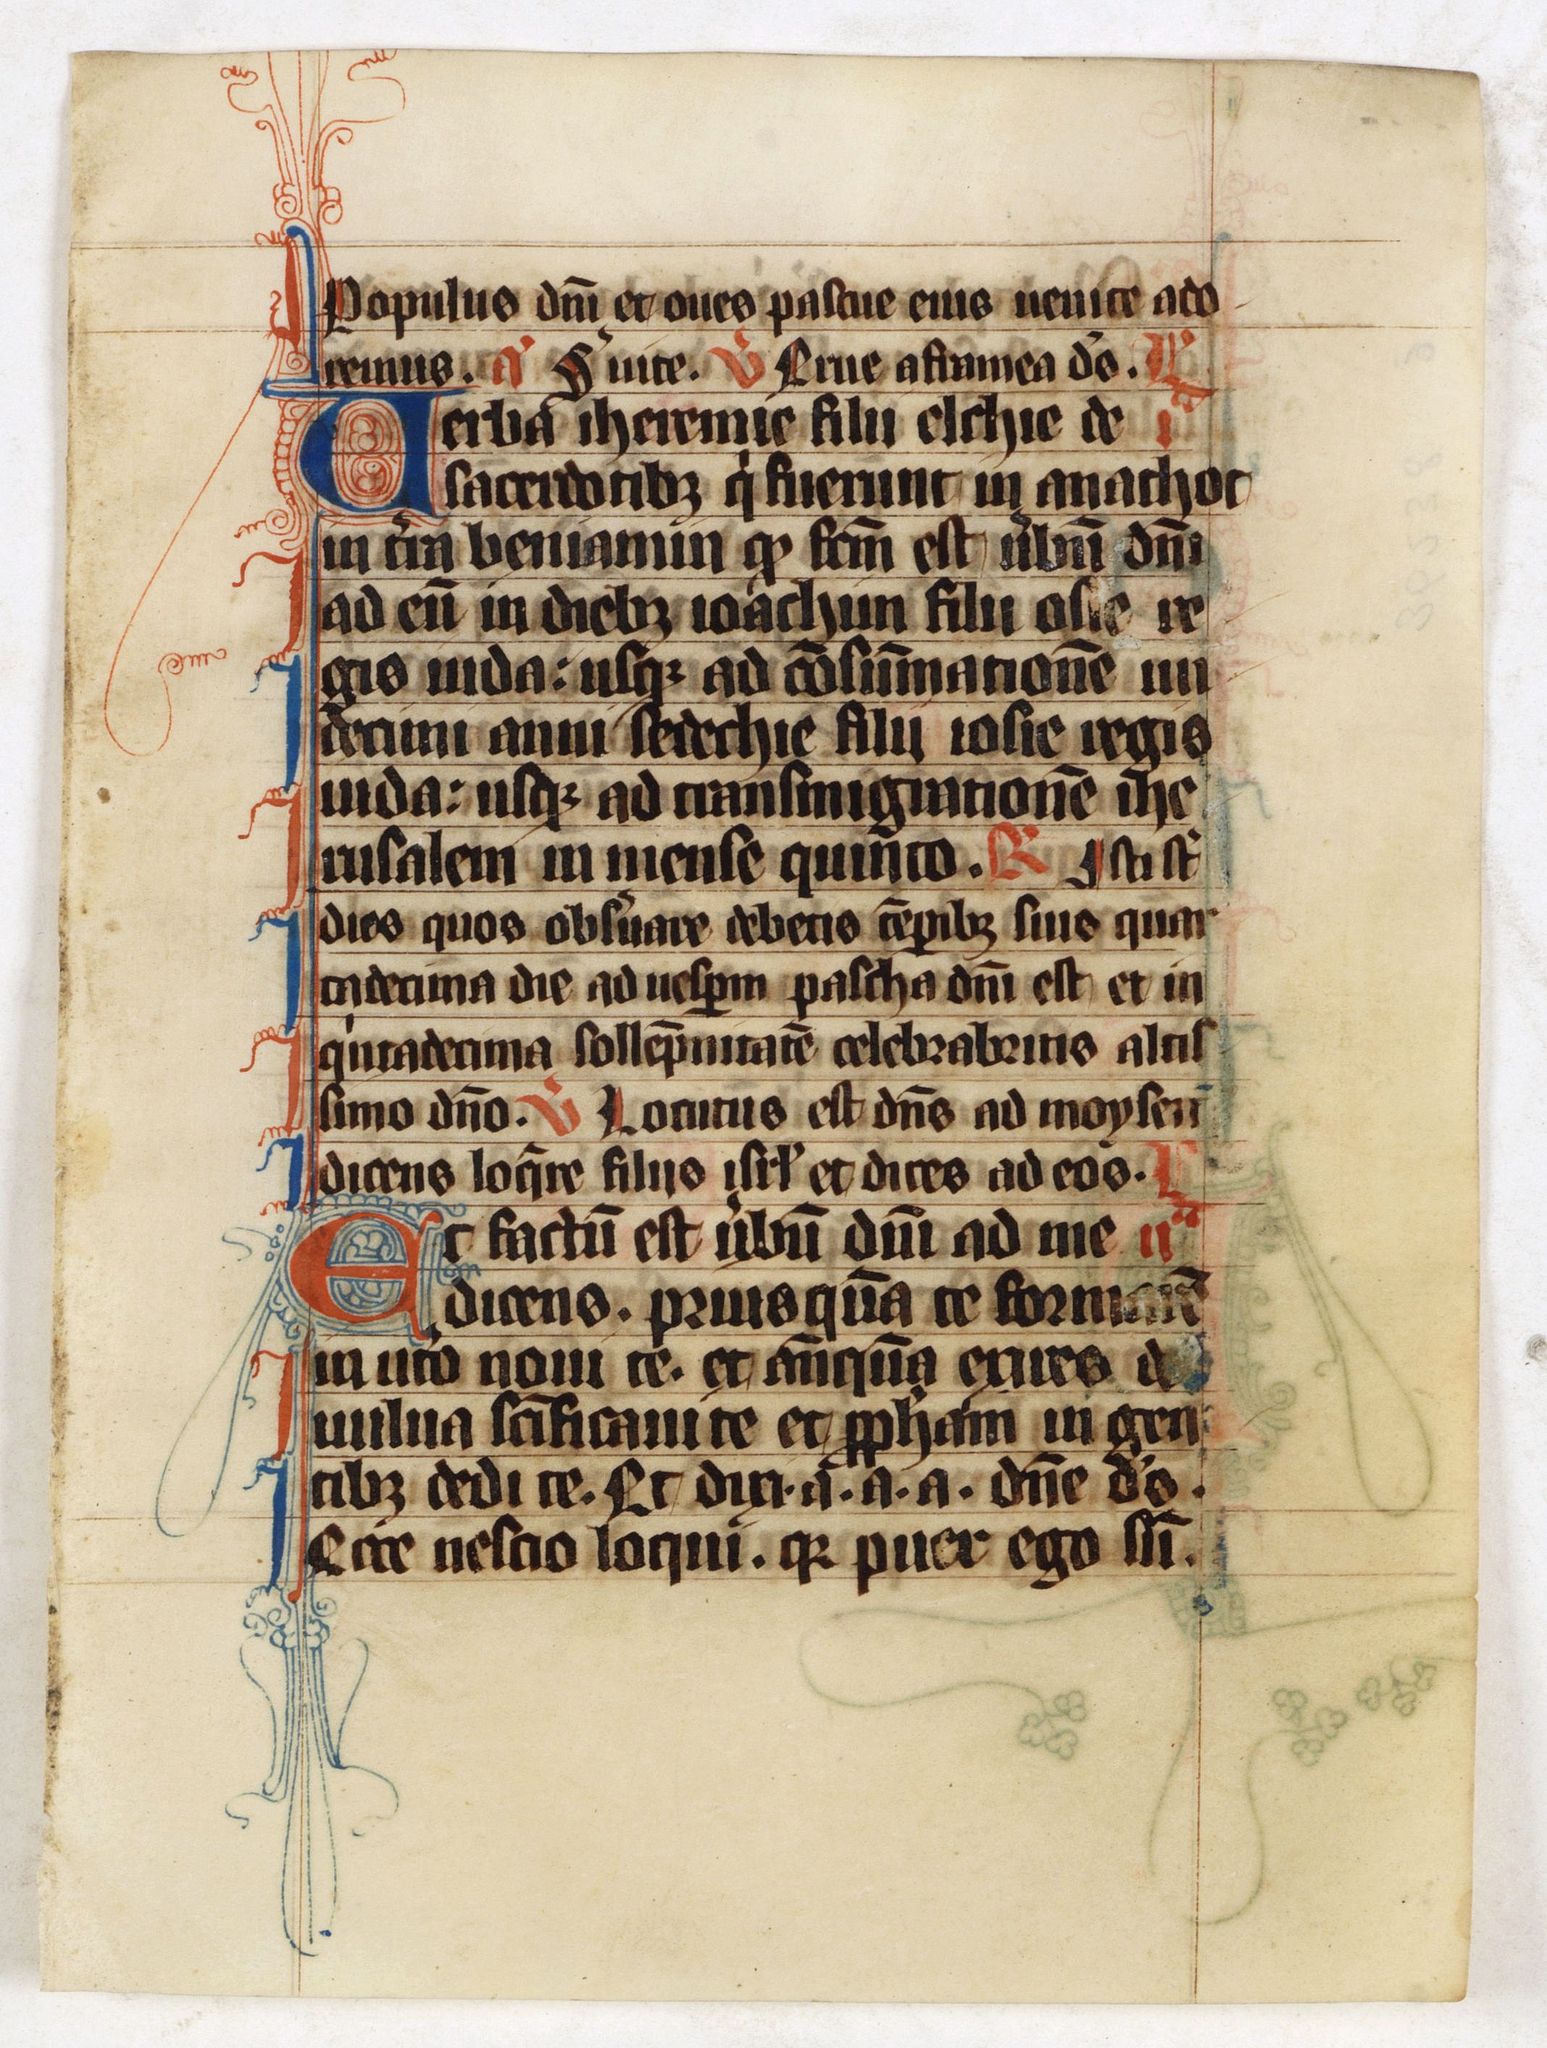 Populus dnī et oues pascue eius uenite ado
remus. a Suite. V Erue a framea ds. L
Uerba iheremie filii elchie de i
sacerdotibz qi fuerunt in anathot
in tra beniamin qp fcm est ubū dnī
ad eū in diebz ioachim filii osie re
gis iuda: usqz ad cōsūmationē un
decimi anni sedechie filii iosie regis
iuda: usqz ad transmigrationē ihe
rusalem in mense quinto. R Isti st
dies quos obsuare debetis tēpibz suis quar
tadecima die ad uespm pascha dnī est et in
qintadecima sollēpnitatē celebrabitis altis
simo dn̄o. V Locutus est dn̄s ad moysen
dicens loqre filiis isrl et dices ad eos. L
Et factū est ubū dnī ad me ii
dicens. priusquā te formarē
in uto noui te. et anqua exires de
uulua scīficaui te et ppham in gen
tibz dedi te. Et dixi. a. a. a. dn̄e ds.
Ecce nescio loqui. qz puer ego sū.